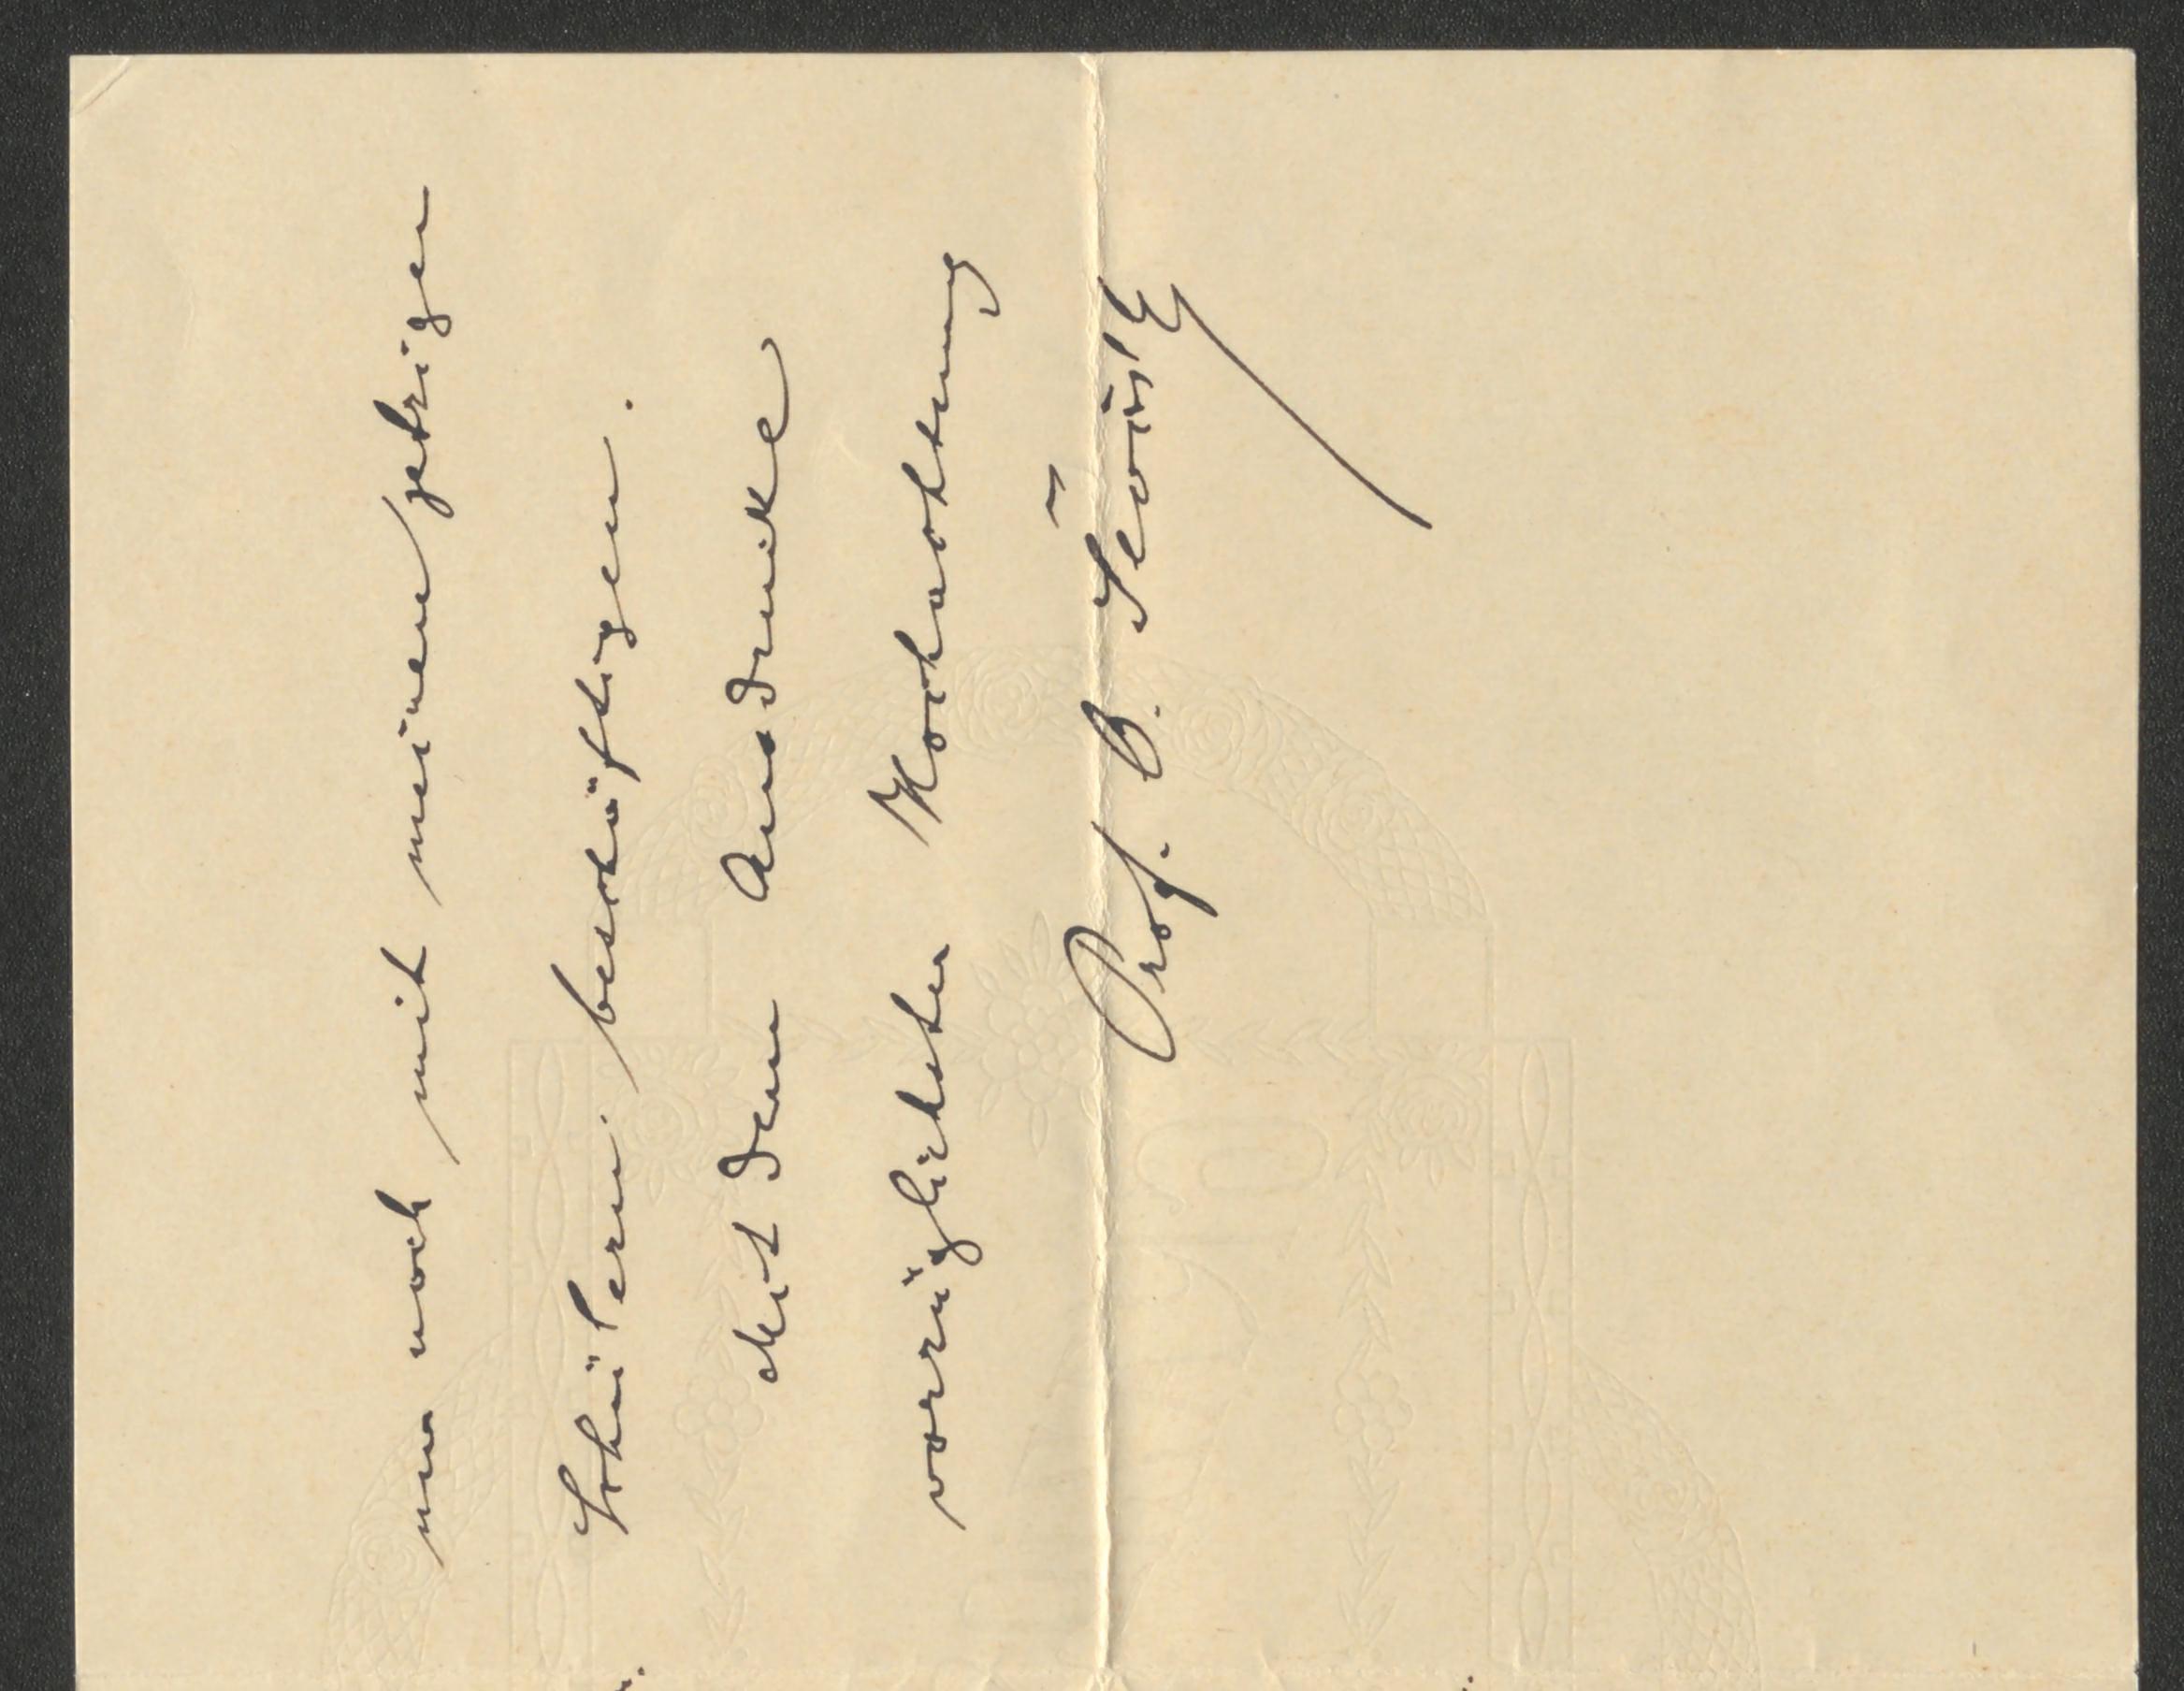 nur noch mit meinen jetzigen
Schülern beschäftigen.
Mit dem Ausdrucke
vorzüglichster Hochachtung
Prof. O. Ševčík